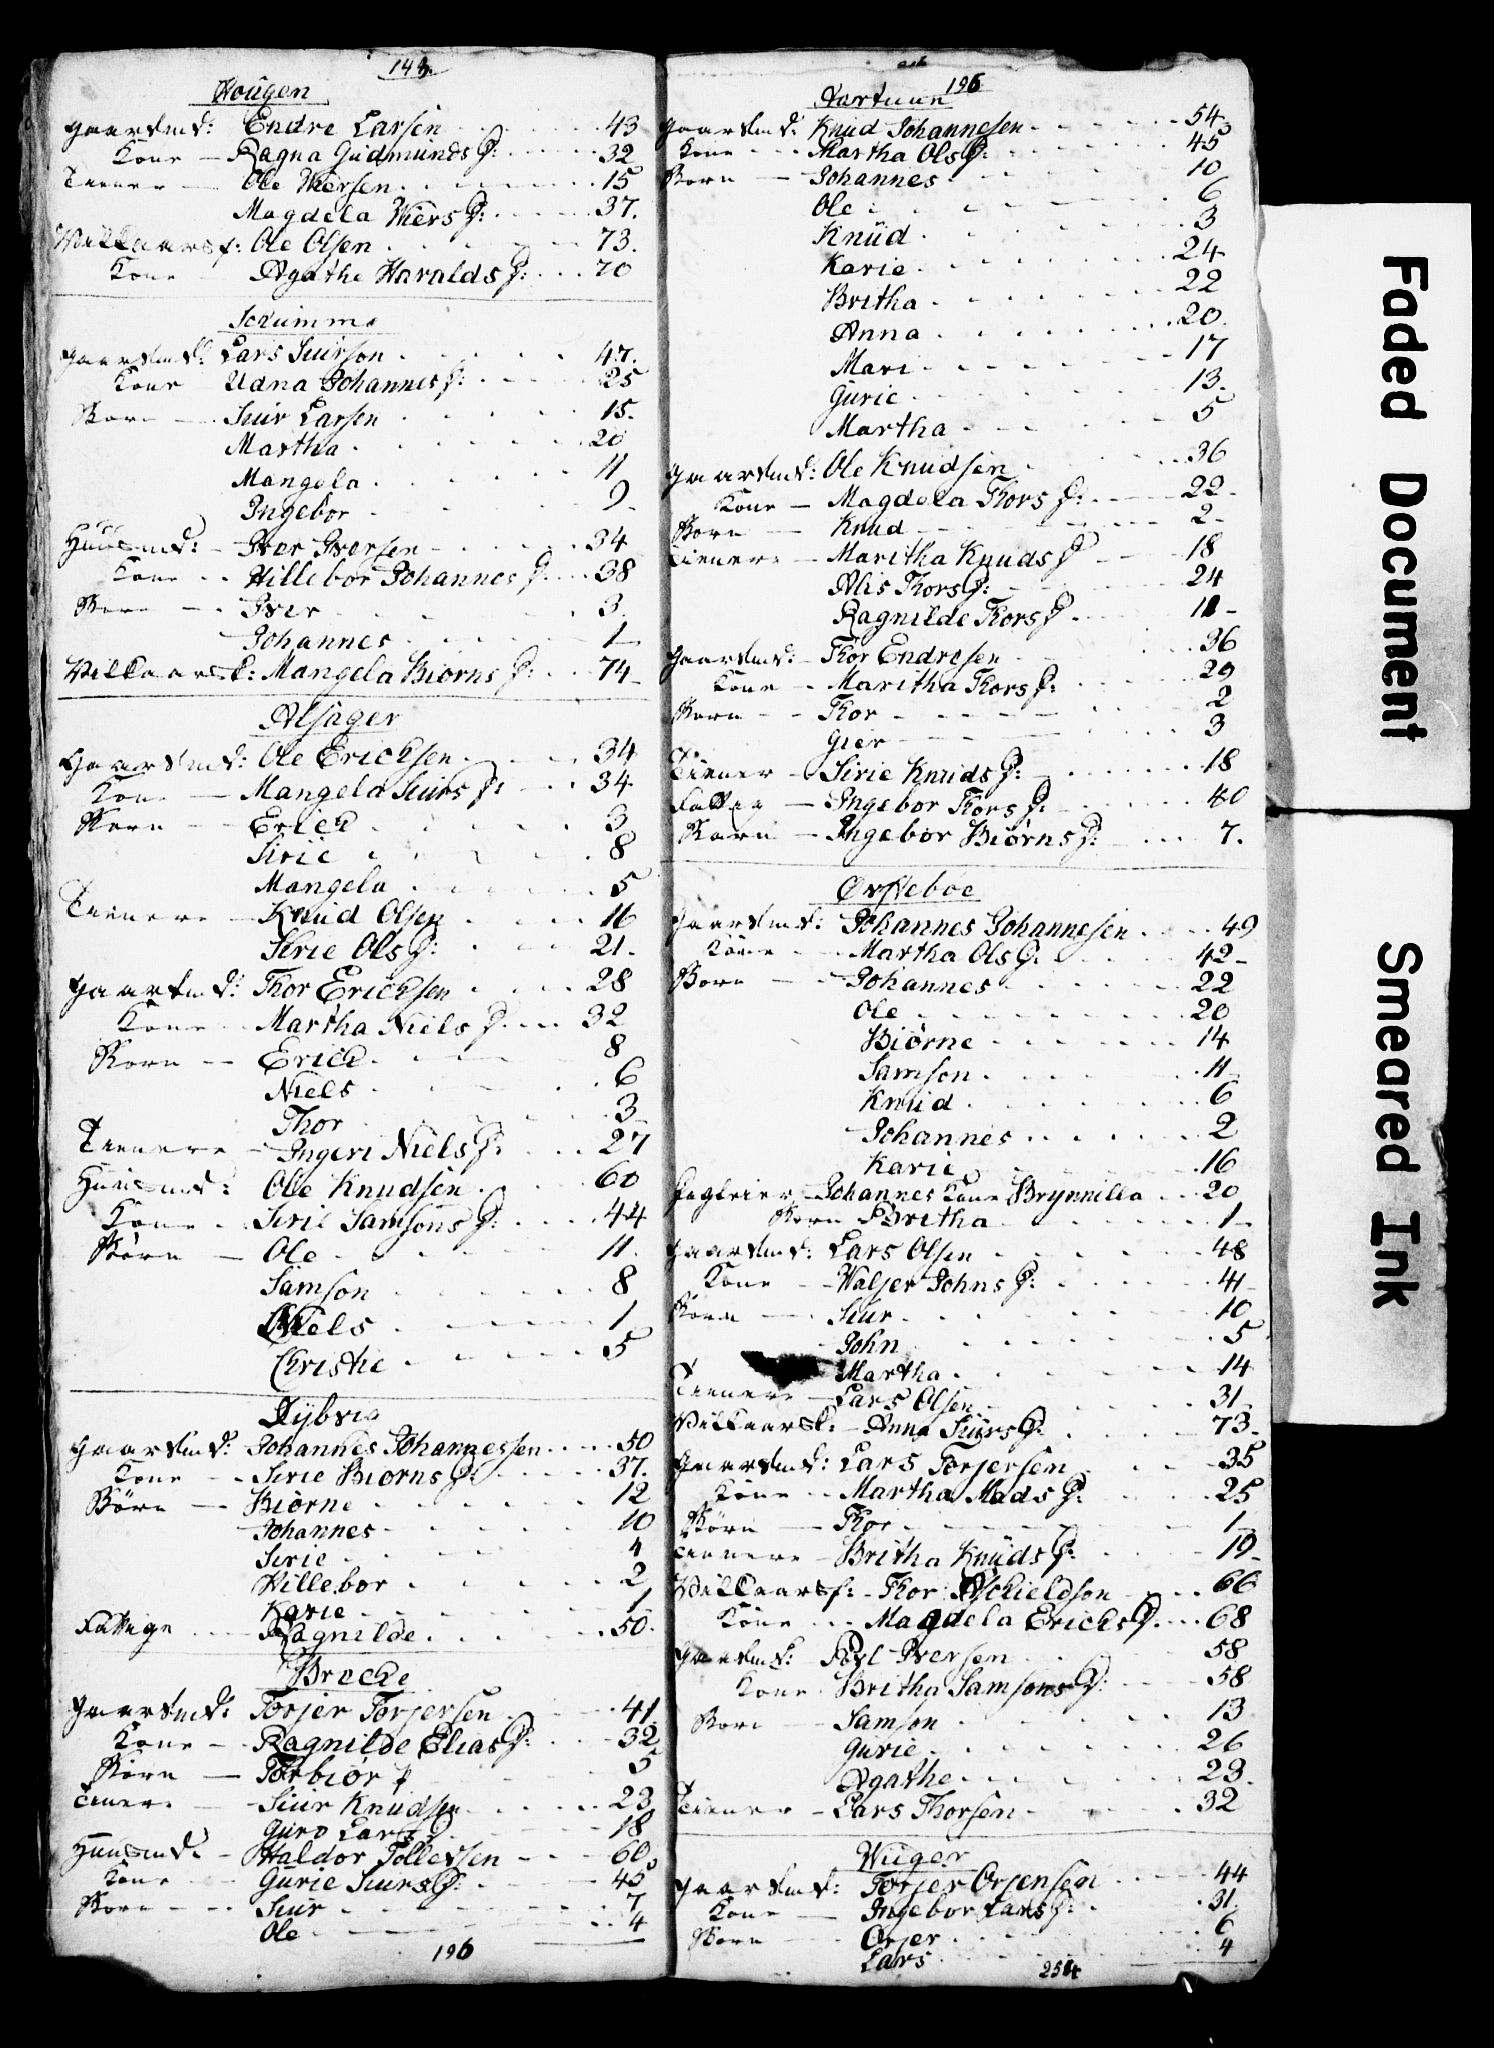 143.
Hougen
gaardmd: Endre Larsen 43
Kone - Ragna Gudmunds D: 32
Tiener - Ole Wiersen 15
Magdela Wiers D: 37.
Vilkaarsf: Ole Olsen 73.
Kone Agathe Haralds D: 70
Scrumme
gaardmd: Lars Siurson 47.
Kone Udna Johannes D: 25
Børn - Siur Larsen 15.
Martha 20
Mangela 11
Ingebor 9.
Huusmd: - Iver Iversen 34
Kone Willebor Johannes D 38
Børn - Iver 3
Johannes 1
Vilkaarsk: Mangela Biørns D: 74
Alsager
gaardmd: Ole Ericksen 34
Kone - Mangela Siurs D: 34
Børn - Erick 3
Sirie 8
Mangela 5
Tienere - Knud Olsen 16
Sirie Ols D: 21.
gaardmd: Thor Ericksen 28
Kone Martha Niels D. 32
Børn - Erick 8
Niels 6
Thor 3
Tienere - Ingeri Niels D: 27
Huusmd: Ole Knudsen 60
Kone Sirie Samsons D: 44
Børn - Ole 11.
Samson 8
Niels 1
Christie 5
Dybvig
gaardmd: Johannes Johannessen 50
Kone - Sirie Biørns D: 37.
Børn - Biørne 12
Johannes 10
Sirie 4
Willebor 2
Karie 1
Fattige Ragnilde 50.
Brecke
gaardmd: Torjer Torjersen 41
Kone - Ragnilde Elias D: 32
Børn - Torbiør 5
Tiener - Siur Knudsen 23
Guro Lars D 18
Huusmd: - Haldor Tollevsen 60
Kone Gurie Siurs D: 45
Børn - Siur 7
Ole 4
196

196
Aartuun
gaardmd: Knud Johannesen 54
Kone - Martha Ols D: 45
Børn - Johannes 10
Ole 6
Knud 3
Karie 24
Britha 22
Anna 20.
Mari 17
Gurie 13.
Martha 5
gaardmd: Ole Knudsen 36
Kone - Magdela Thors D: 22
Børn - Knud 2
Tienere - Maritha Knuds D 18
Alis Thors D: 24
Ragnilde Thors D
gaardmd: - Thor Endresen 36
Kone - Maritha Thors D: 29
Børn - Thor 2
Gier 3
Tiener - Sirie Knuds D: 18
Fattig - Ingebor Thors D: 40
Børn - Ingebor Biørns D: 7.
Ørstebøe
gaardmd: Johannes Johannesen 49
Kone Martha Ols D: 42
Børn - Johannes 22
Ole 20
Biørne 14
Samson 11
Knud 6
Johannes 2
Karie 16
Johannes Kone Brynnilla 20
Børn Britha 1
gaardmd: Lars Olsen 48
Kone - Waljer Johns D: 41
Børn - Siur 10
John 5
Martha 14
Tienere - Lars Olsen 31
Vilkaarsk: - Anna Siurs D: 73.
gaardmd: Lars Torjersen 35
Kone Martha Mads D: 25
Børn - Thor 1
Tienere - Britha Knuds D: 19
Vilkaarsf: - Thor Aschieldson 66
Kone Magdela Ericks D. 68
gaardmd: Poul Iversen 58
Kone Britha Samsons D: 58
Børn - Samson 13
Gurie 26
Agathe 23.
Tiener - Lars Thorsen 32
Wiiger
gaardmd: Torjer Orjensen 44
Kone - Ingebor Lars D: 31.
Børn - Orjer 6
Lars 4
254
Faded Document
Smeared Ink